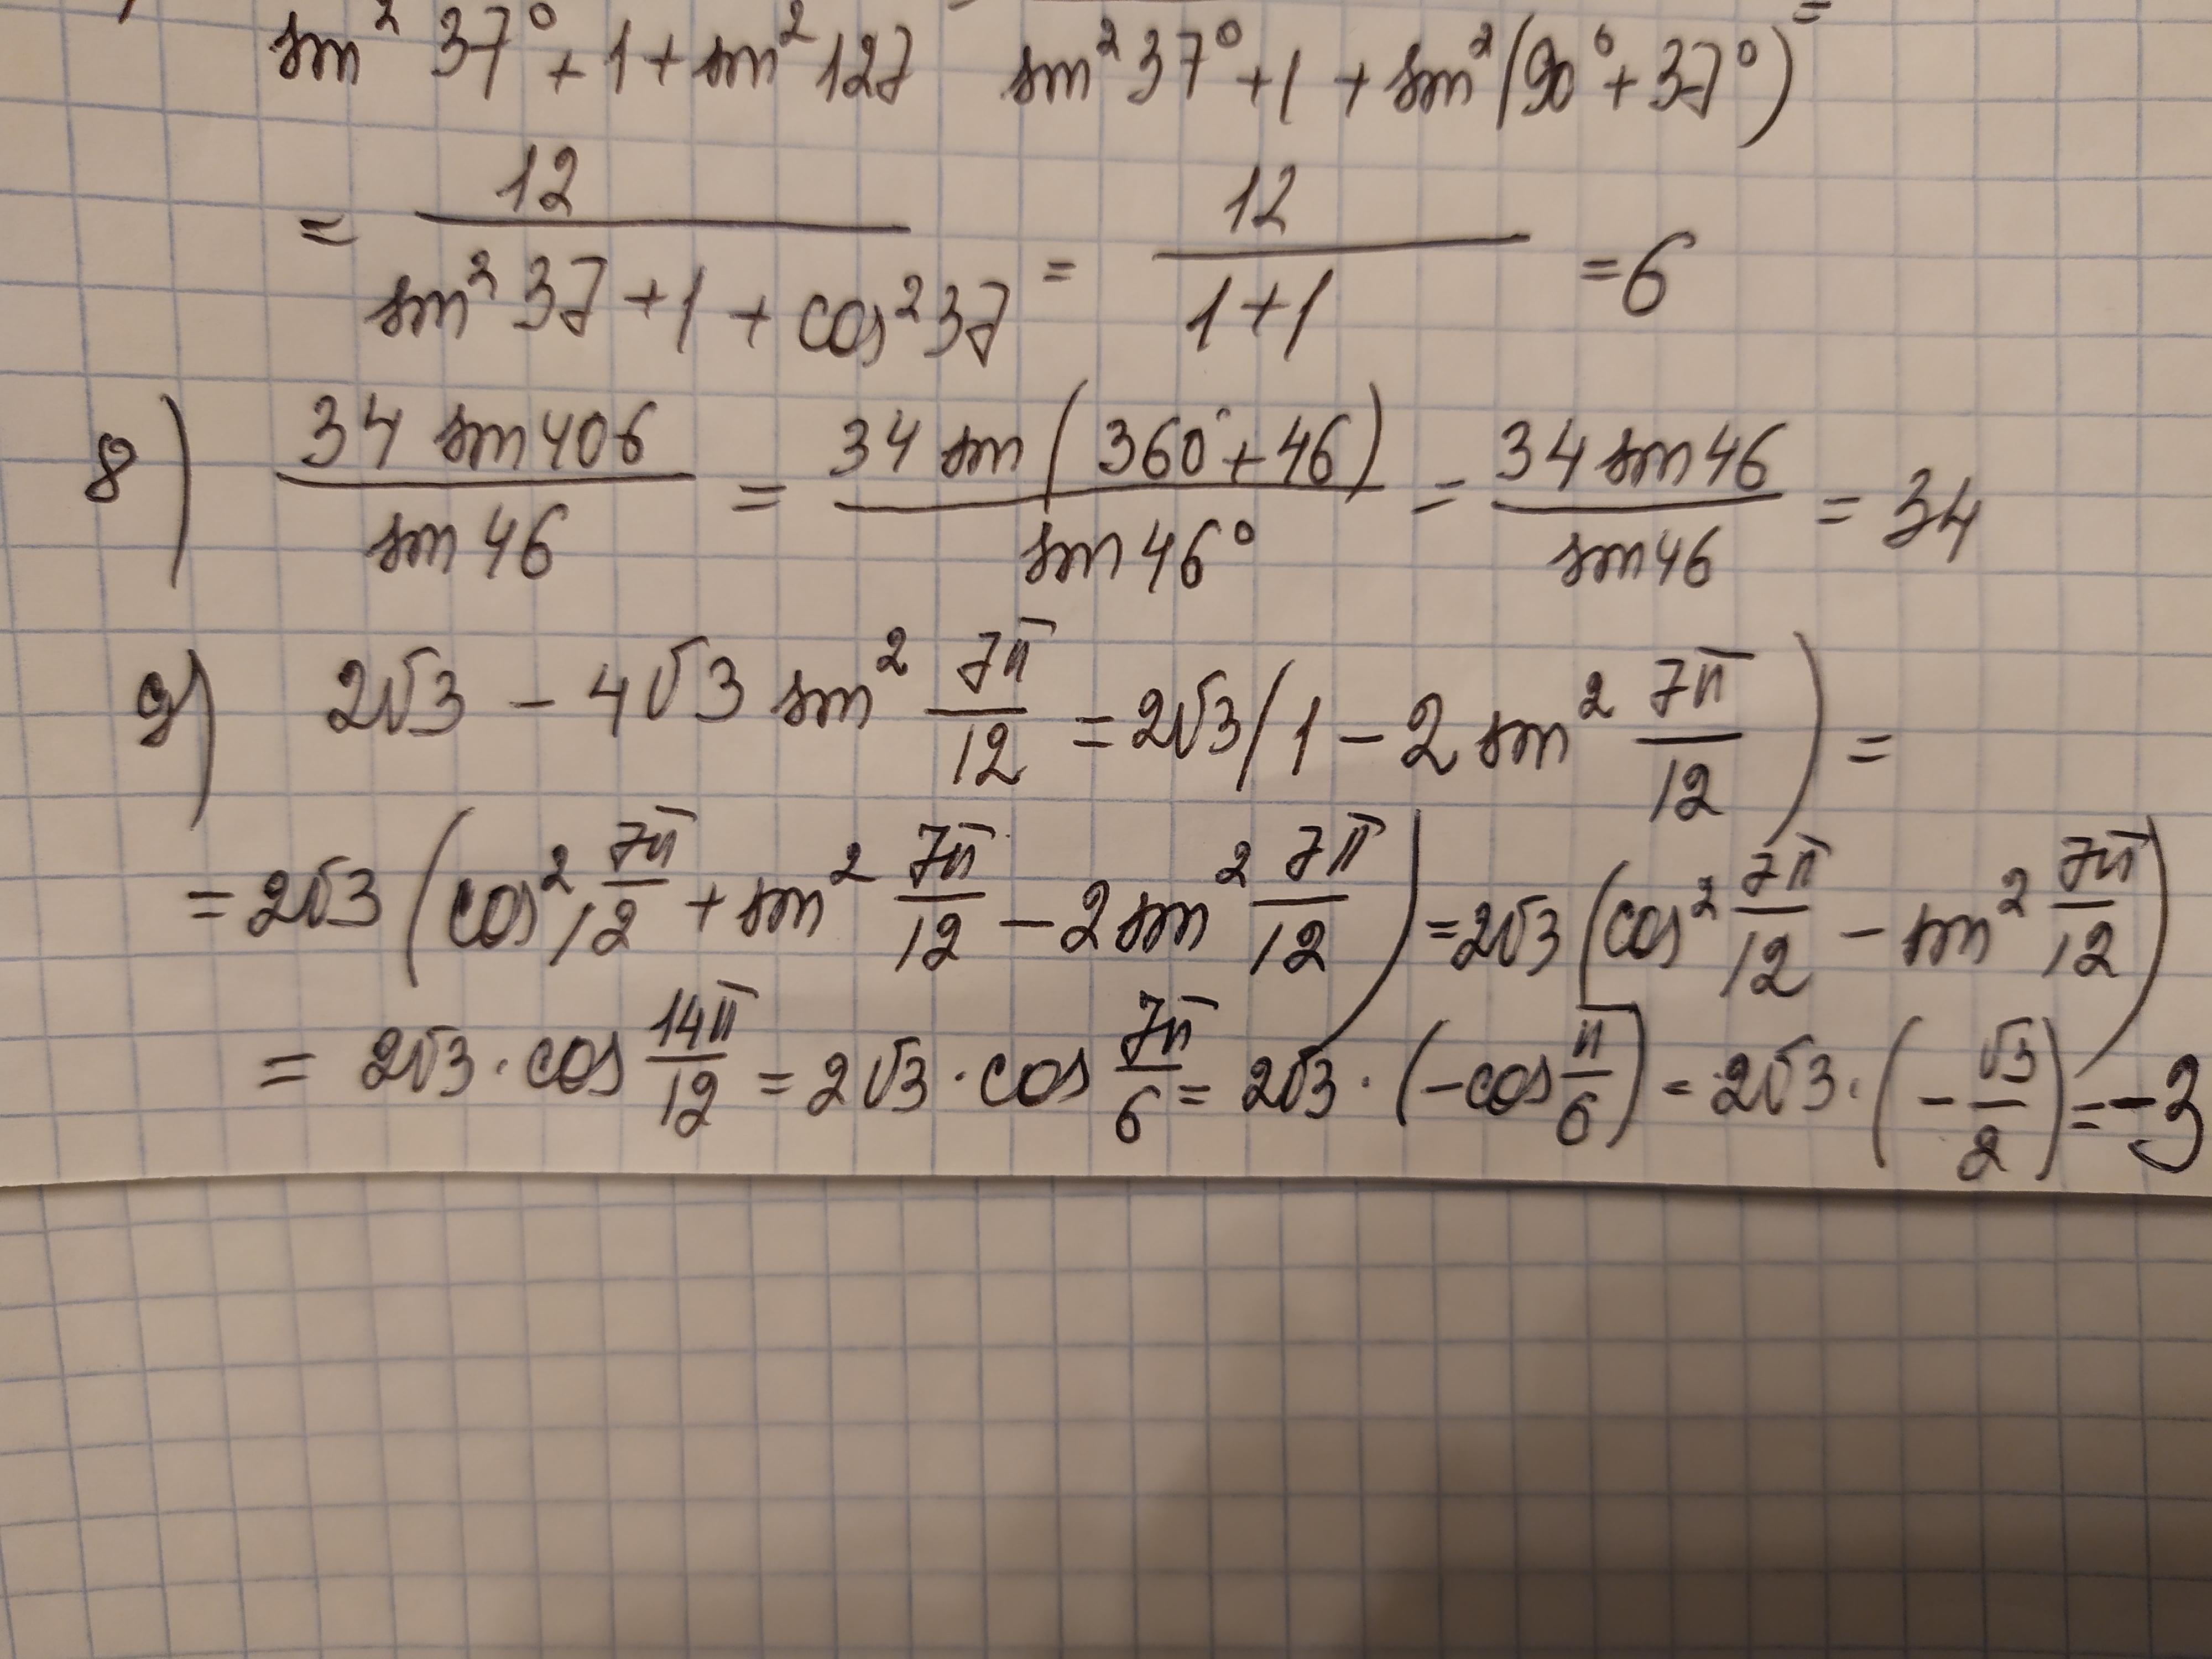 sin² 37° + 1 + sin² 127 sin² 37° + 1 + sin² (90° + 37°) =
= 12 / (sin² 37 + 1 + cos² 37) = 12 / (1 + 1) = 6
8) 34 sin 406 / sin 46 = 34 sin (360° + 46) / sin 46° = 34 sin 46 / sin 46 = 34
9) 2√3 − 4√3 sin² 7π/12 = 2√3 (1 − 2 sin² 7π/12) =
= 2√3 (cos² 7π/12 + sin² 7π/12 − 2 sin² 7π/12) = 2√3 (cos² 7π/12 − sin² 7π/12)
= 2√3 · cos 14π/12 = 2√3 · cos 7π/6 = 2√3 · (−cos π/6) = 2√3 · (−√3/2) = −3